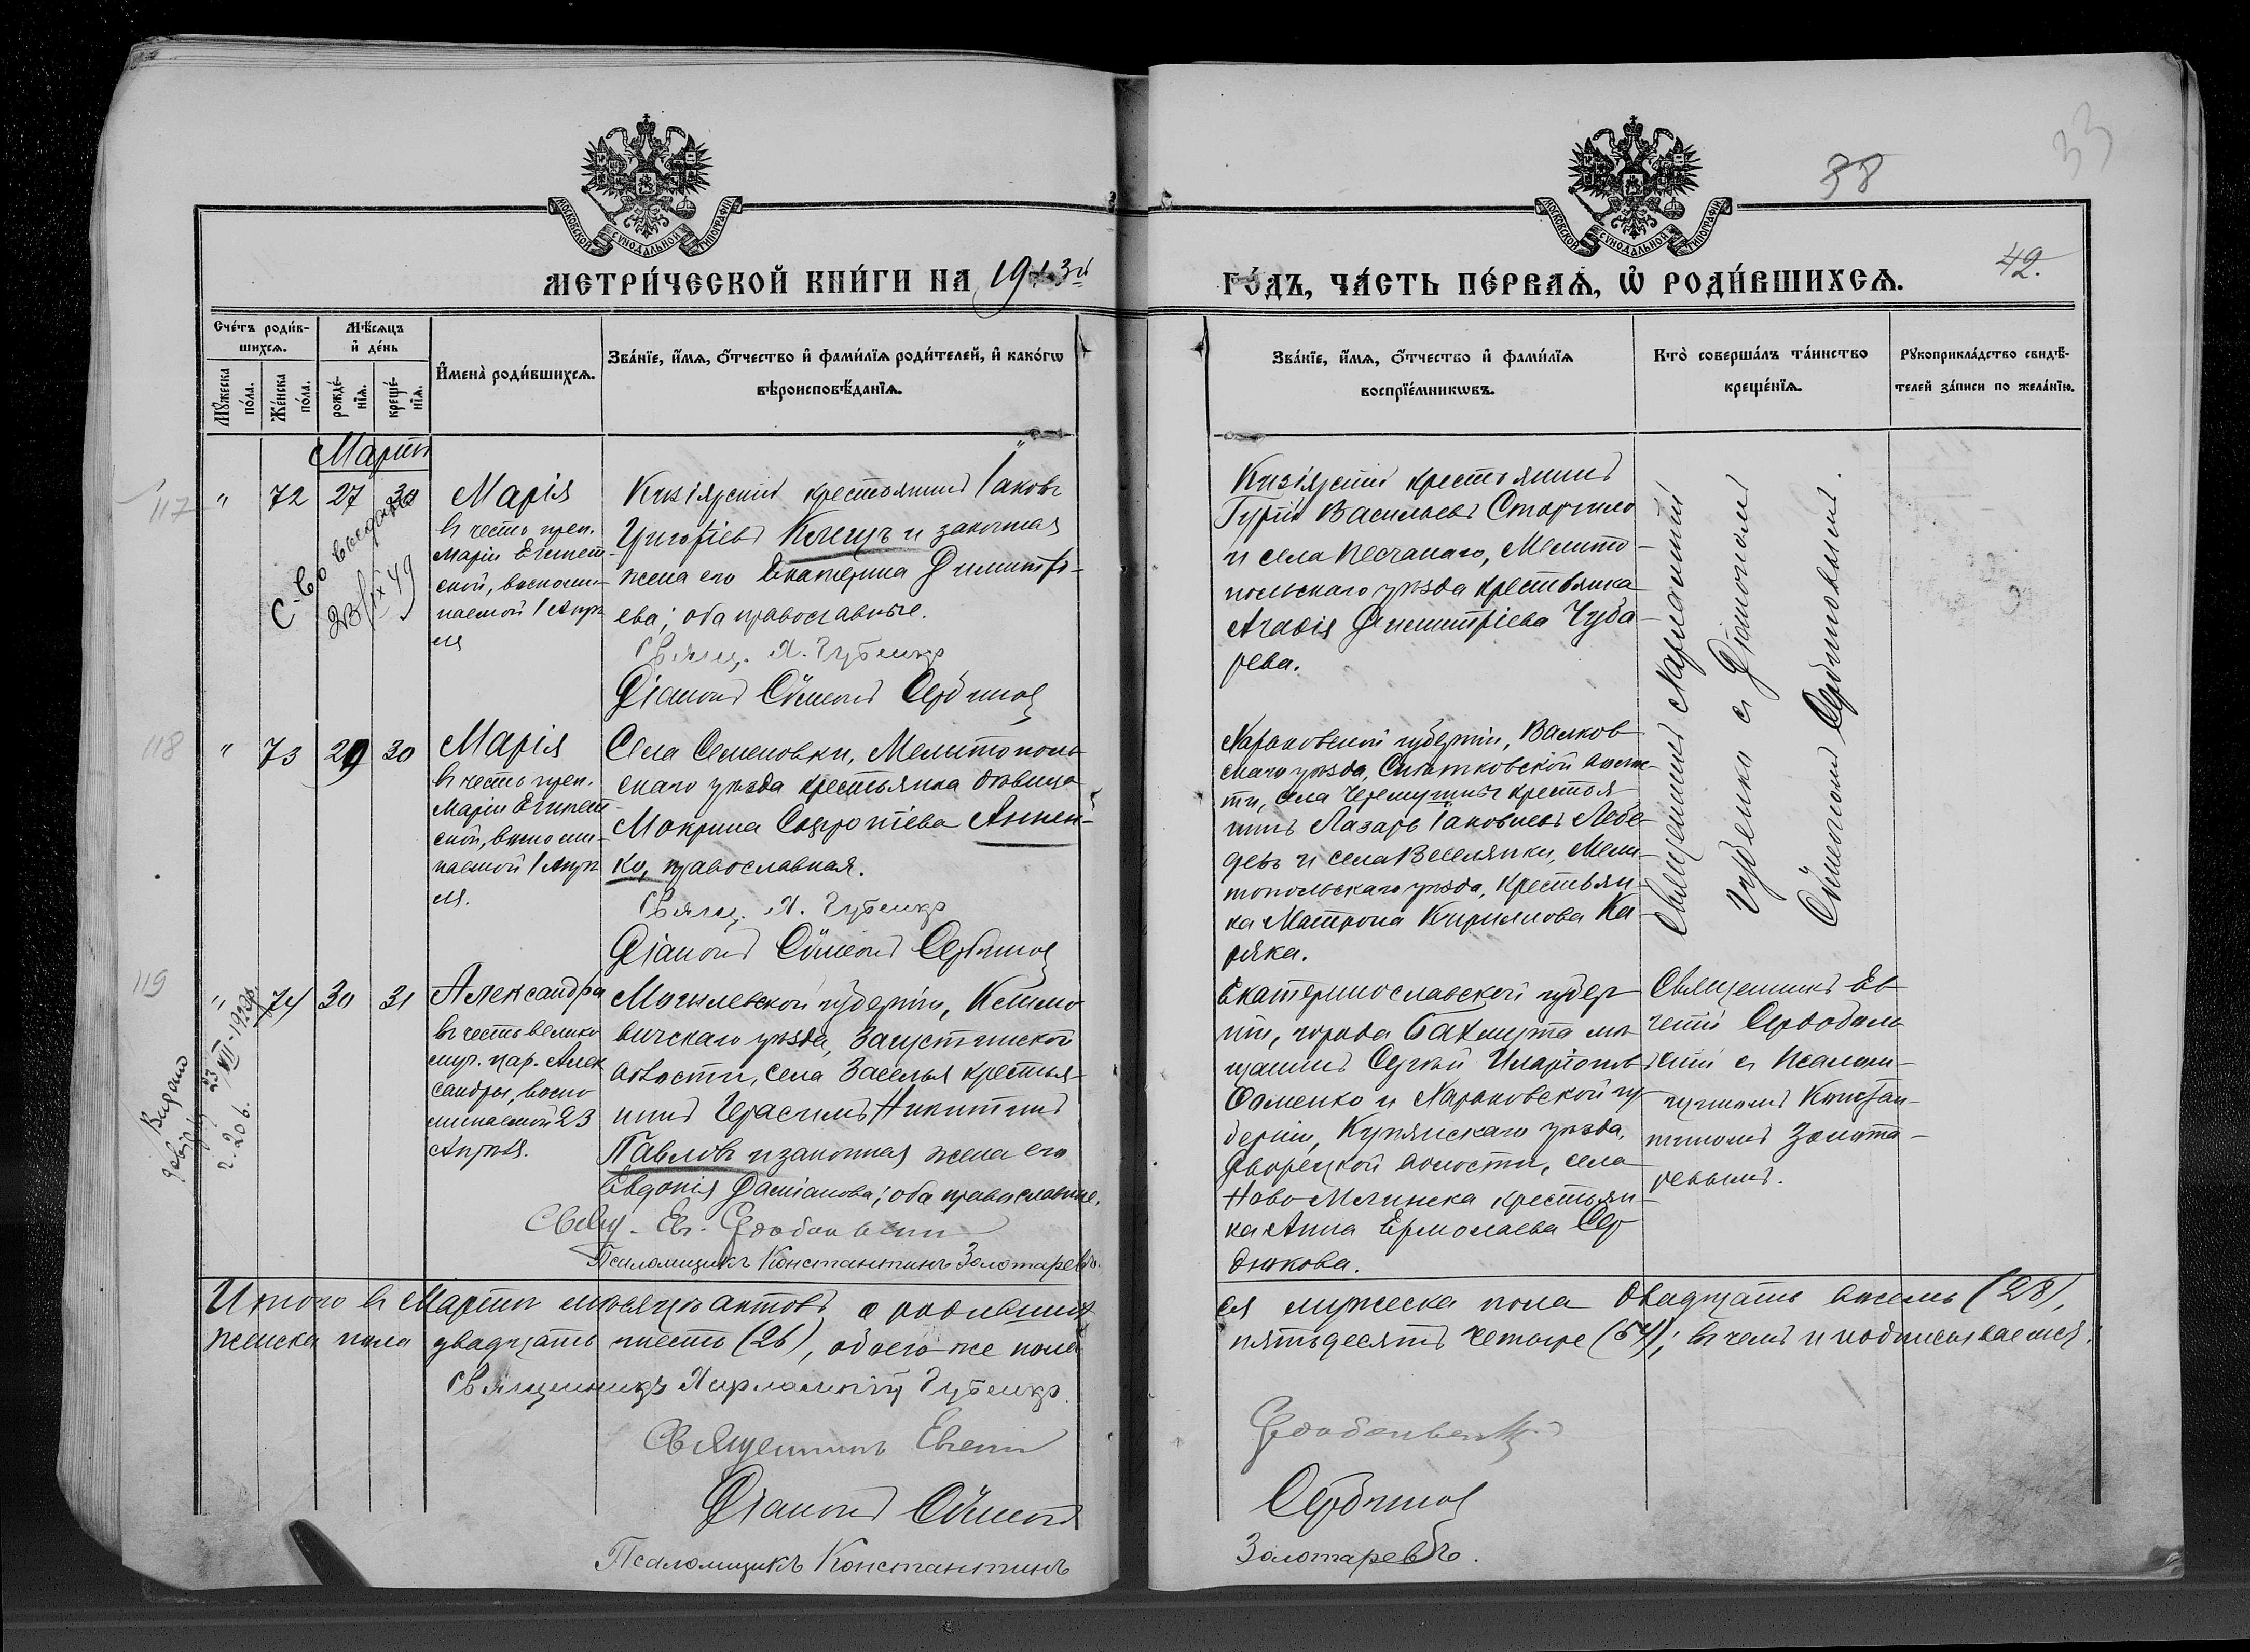 38
33
42.
МОСКОВСКОЙ СУНОДАЛЬНОЙ ТИПОГРАФІИ
МОСКОВСКОЙ СУНОДАЛЬНОЙ ТИПОГРАФІИ
МЕТРИ́ЧЕСКОЙ КНИ́ГИ НА 1913й ГО́ДЪ, ЧА́СТЬ ПЕ́РВАѦ, Ѡ҆ РОДИ́ВШИХСѦ.
Сче́тъ роди́в-
шихсѧ.
Мꙋ́жеска по́ла.
Же́нска по́ла.
Мѣ́сѧцъ
и҆ де́нь
рожде́-
нїѧ.
креще́-
нїѧ.
И҆мена̀ роди́вшихсѧ.
Зва́нїе, и҆́мѧ, ѻ҆́тчество и҆ фами́лїѧ роди́телей, и҆ како́гѡ
вѣроисповѣ́данїѧ.
Зва́нїе, и҆́мѧ, ѻ҆́тчество и҆ фами́лїѧ
воспрїе́мникѡвъ.
Кто̀ соверша́лъ та́инство
креще́нїѧ.
Рꙋкоприкла́дство свидѣ́-
телей за́писи по жела́нїю.
Мартъ
117
"
72
27
30
С-во выдано
23/IX 49
Марія
въ честь преп.
Маріи Египет-
ской, воспоми-
наемой 1 Апрѣ
ля
Кизіярскій крестьянинъ Іаковъ
Григоріевъ Клецъ и законная
жена его Екатерина Димитрі-
ева; оба православные.
Свящ. Х. Губенко
Діаконъ Сѵмеонъ
Кизіярскій крестьянинъ
Гурій Васильевъ
и села Песчанаго, Мелито-
польскаго уѣзда крестьянка
Агаѳія Димитріева Чуба-
рева.
Священникъ Харлампій
Губенко съ Діакономъ
Сѵмеономъ
118
"
73
29
30
Марія
въ честь преп.
Маріи Египет-
ской, воспоми-
наемой 1 Апрѣ
ля.
Села Семеновки, Мелитополь-
скаго уѣзда крестьянка дѣвица
Макрина Софроніева Аннен-
ко, православная.
Свящ. Х. Губенко
Діаконъ Сѵмеонъ
Харьковской губерніи, Валков-
скаго уѣзда, волос-
ти, села Черемушны крестья-
нинъ Лазарь Іаковлевъ Лебе-
девъ и села Веселянки, Мели-
топольскаго уѣзда, крестьян-
ка Матрона Кириллова Ка-
ряка.
119
"
74
30
31
Выдано
23/XII-1923г.
г. 206.
Александра
въ честь велико
муч. цар. Алек
сандры, воспо
минаемой 23
Апрѣля.
Могилевской губерніи, Климо
вичскаго уѣзда,
волости, села Заселья крестья-
нинъ Герасимъ Никитинъ
Павловъ и законная жена его
Евдокія Даміанова; оба православные.
Свящ. Ев.
Псаломщикъ Константинъ Золотаревъ.
Екатеринославской губер
ніи, города Бахмута мѣ
щанинъ Сергій Иларіоновъ
Фоменко и Харьковской гу
берніи, Купянскаго уѣзда,
Дворецкой волости, села
Ново Млинска крестьян-
ка Анна Ермолаева Сер
дюкова.
Священникъ Ев
геній
съ Псалом-
щикомъ Констан-
тиномъ Золота-
ревымъ.
Итого въ Мартѣ мѣсяцѣ актовъ о родивших
ся мужеска пола двадцать восемь (28),
женска пола двадцать шесть (26), обоего же пола
пятьдесятъ четыре (54); въ чемъ и подписываемся.
Священникъ Харлампій Губенко.
Священникъ Евгеній
Діаконъ Сѵмеонъ
Псаломщикъ Константинъ
Золотаревъ.